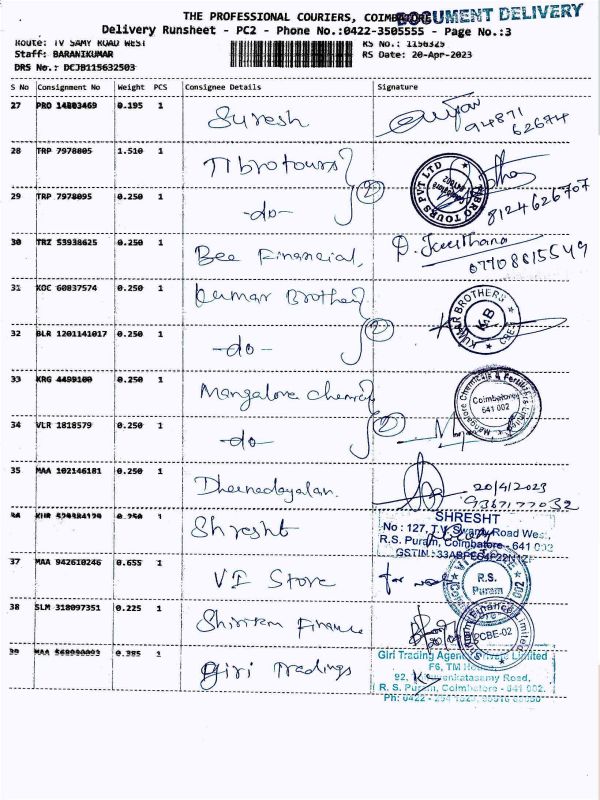 THE PROFESSIONAL COURIERS, COIMBATORE
DOCUMENT DELIVERY
Delivery Runsheet - PC2 - Phone No.:0422-3505555 - Page No.:3
Route: TV SAMY ROAD WEST RS No.: 1156325
Staff: BARANIKUMAR RS Date: 20-Apr-2023
DRS No.: DCJB115632503
S No Consignment No Weight PCS Consignee Details Signature
27 PRO 14803469 0.195 1 Suresh 94871
62674
28 TRP 7978805 1.510 1 TTbrotours
29 TRP 7978095 0.250 1 -do- 2 8124626707
30 TRZ 53938625 0.250 1 Bee Financial,
07708615549
31 KOC 60837574 0.250 1 Kumar Brother
KUMAR BROTHERS
KAB
CBE
32 BLR 1201141017 0.250 1 -do- 2
33 KRG 4499100 0.250 1 Mangalore Chemical
Mangalore Chemicals & Fertilizers Limited
Coimbatore
641 002
34 VLR 1818579 0.250 1 -do- 2
35 MAA 102146181 0.250 1 Dheenadayalan. 20/4/2023
36 0.250 1 Shresht
SHRESHT
No : 127, T.V. Swamy Road West,
R.S. Puram, Coimbatore - 641 002
37 MAA 942610246 0.655 1 VI Store
R.S.
Puram
38 SLM 318097351 0.225 1 Shriram Finance
CBE-02
39 0.385 1 Giri Tradings
Giri Trading Agency Private Limited
R. S. Puram, Coimbatore - 641 002.